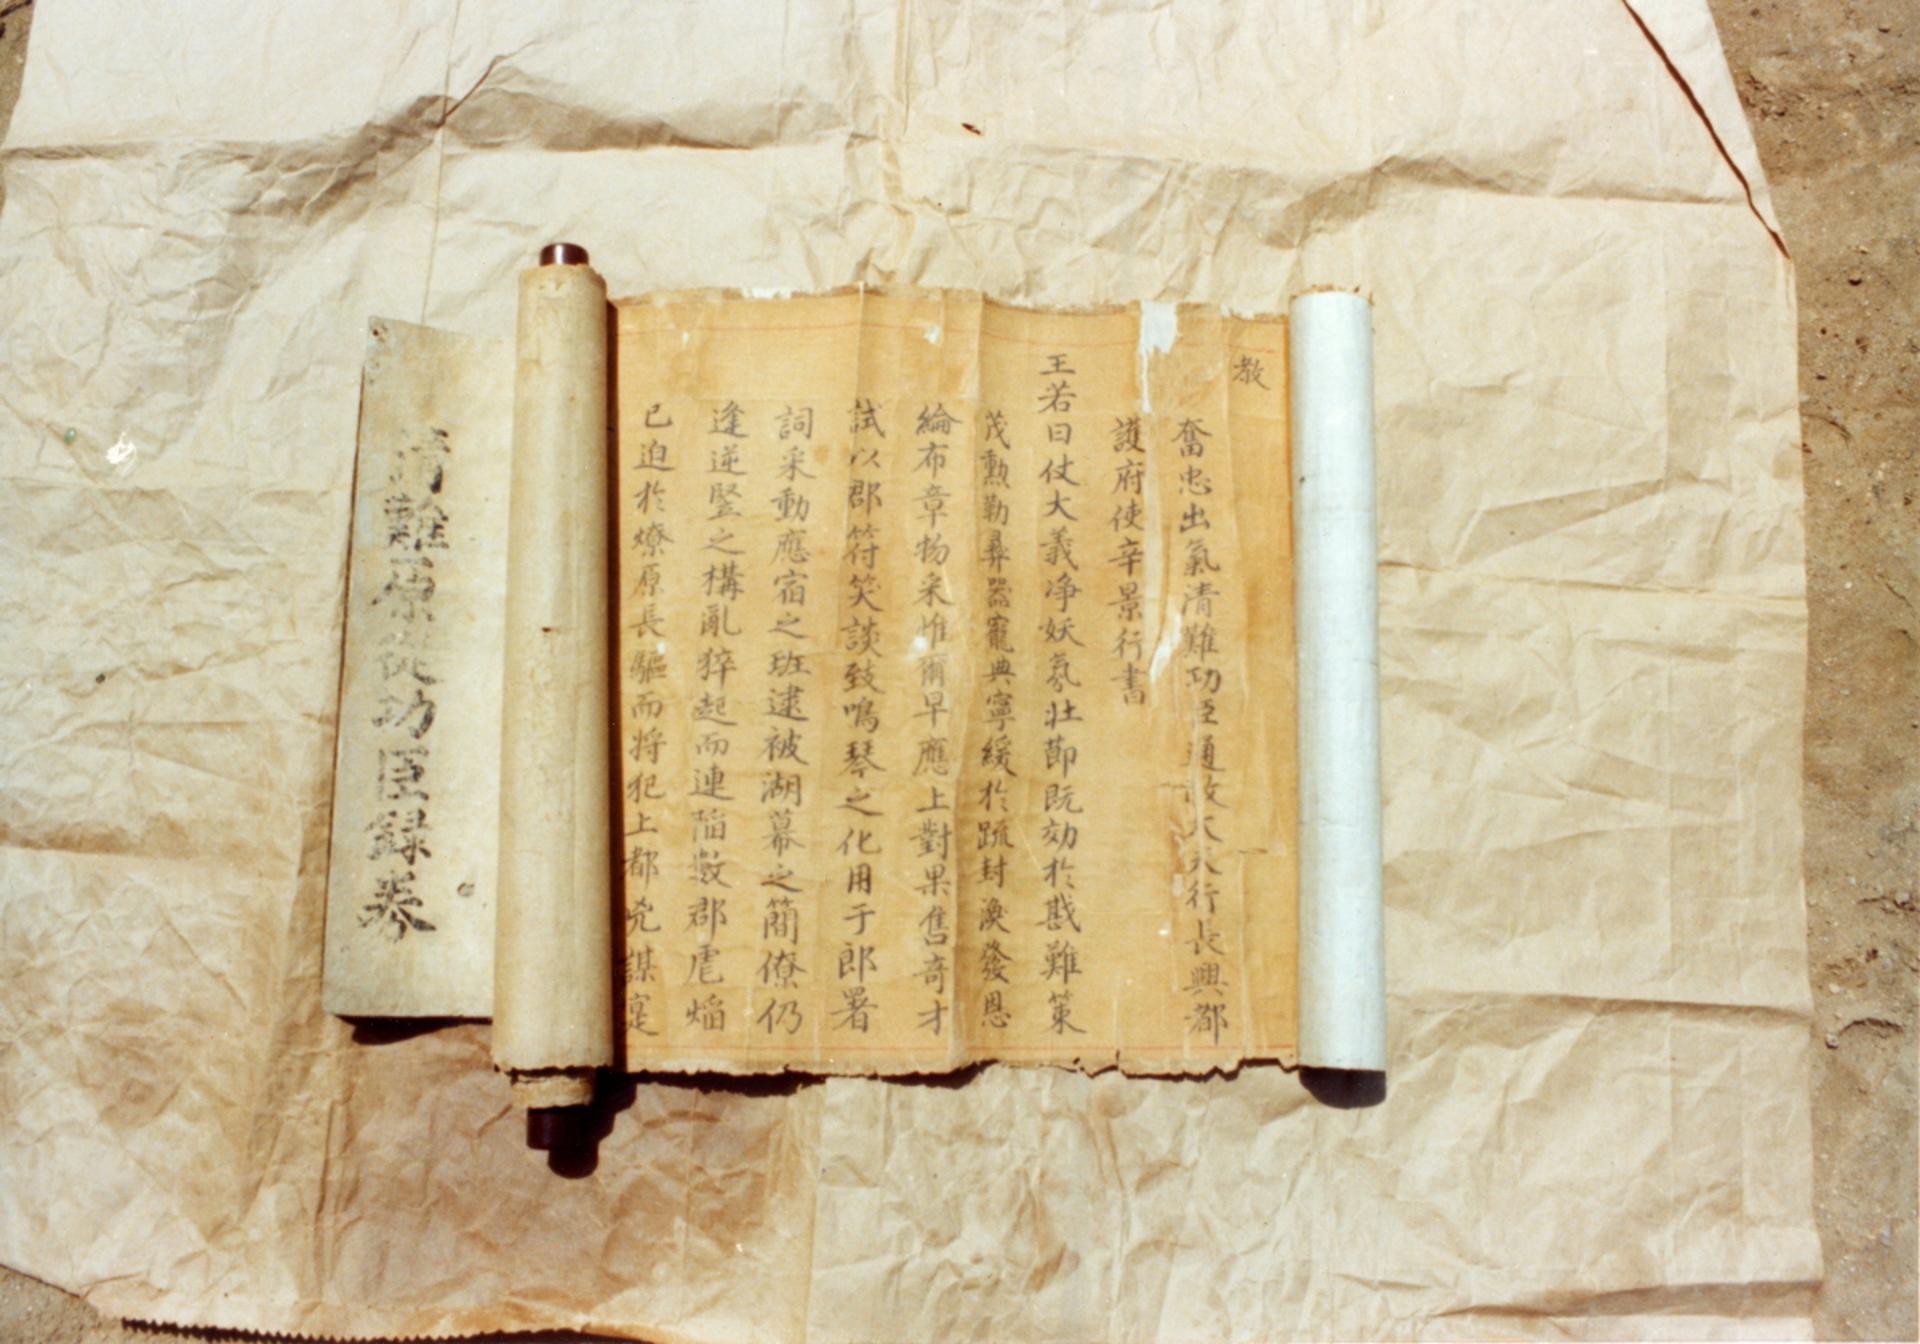 教
奮忠出氣清難功臣通政大夫行長興都
護府使辛景行書
王若曰仗大義淨妖氛壯節既効於戡難策
茂勲勒彝器寵典寧緩於疏封渙發恩
綸布章物采惟爾早應上對果雋奇才
試以郡符笑談致鳴琴之化用于郎署
詞采動應宿之班逮被湖幕之簡僚仍
逢逆竪之構亂猝起而連陷數郡虐焰
已迫於燎原長驅而將犯上都兇謀寔
清難原從功臣錄券